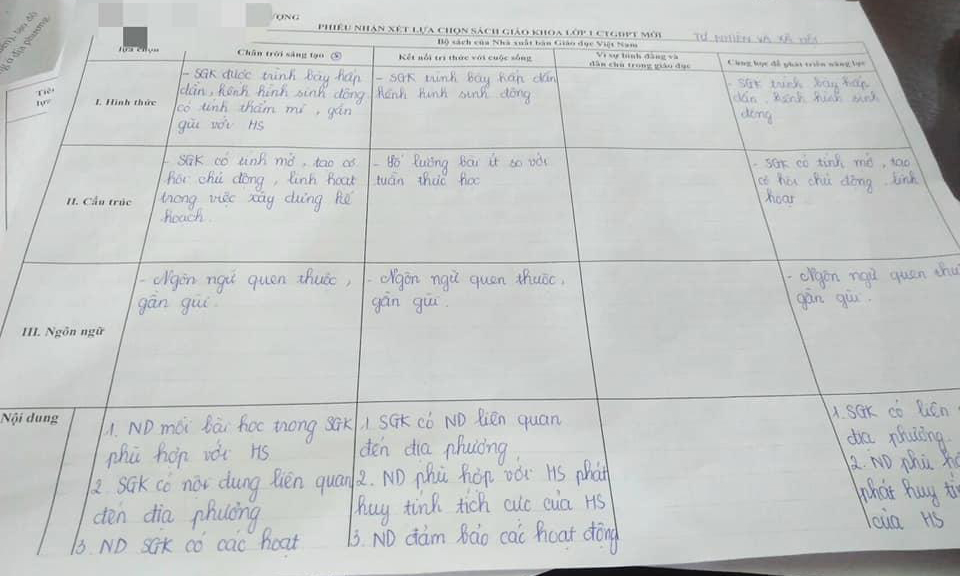 ƯỢNG
PHIẾU NHẬN XÉT LỰA CHỌN SÁCH GIÁO KHOA LỚP 1 CTGDPT MỚI
TỰ NHIÊN VÀ XÃ HỘI
Bộ sách của Nhà xuất bản Giáo dục Việt Nam
lựa chọn
Chân trời sáng tạo
Kết nối tri thức với cuộc sống
Vì sự bình đẳng và
dân chủ trong giáo dục
Cùng học để phát triển năng lực
I. Hình thức
- SGK được trình bày hấp
dẫn, kênh hình sinh động
có tính thẩm mĩ, gần
gũi với HS
- SGK trình bày hấp dẫn
kênh hình sinh động
- SGK trình bày hấp
dẫn, kênh hình sinh
động
II. Cấu trúc
- SGK có tính mở, tạo cơ
hội chủ động, linh hoạt
trong việc xây dựng kế
hoạch.
- Số lượng bài ít so với
tuần thực học
- SGK có tính mở, tạo
cơ hội chủ động linh
hoạt
III. Ngôn ngữ
- Ngôn ngữ quen thuộc,
gần gũi.
- Ngôn ngữ quen thuộc,
gần gũi.
- Ngôn ngữ quen thu
gần gũi.
Nội dung
1. ND mỗi bài học trong SGK
phù hợp với HS
2. SGK có nội dung liên quan
đến địa phương
3. ND SGK có các hoạt
1. SGK có ND liên quan
đến địa phương
2. ND phù hợp với HS phát
huy tính tích cực của HS
3. ND đảm bảo các hoạt động
1. SGK có liên
địa phương
2. ND phù h
phát huy tí
của HS
Tiêu
lực